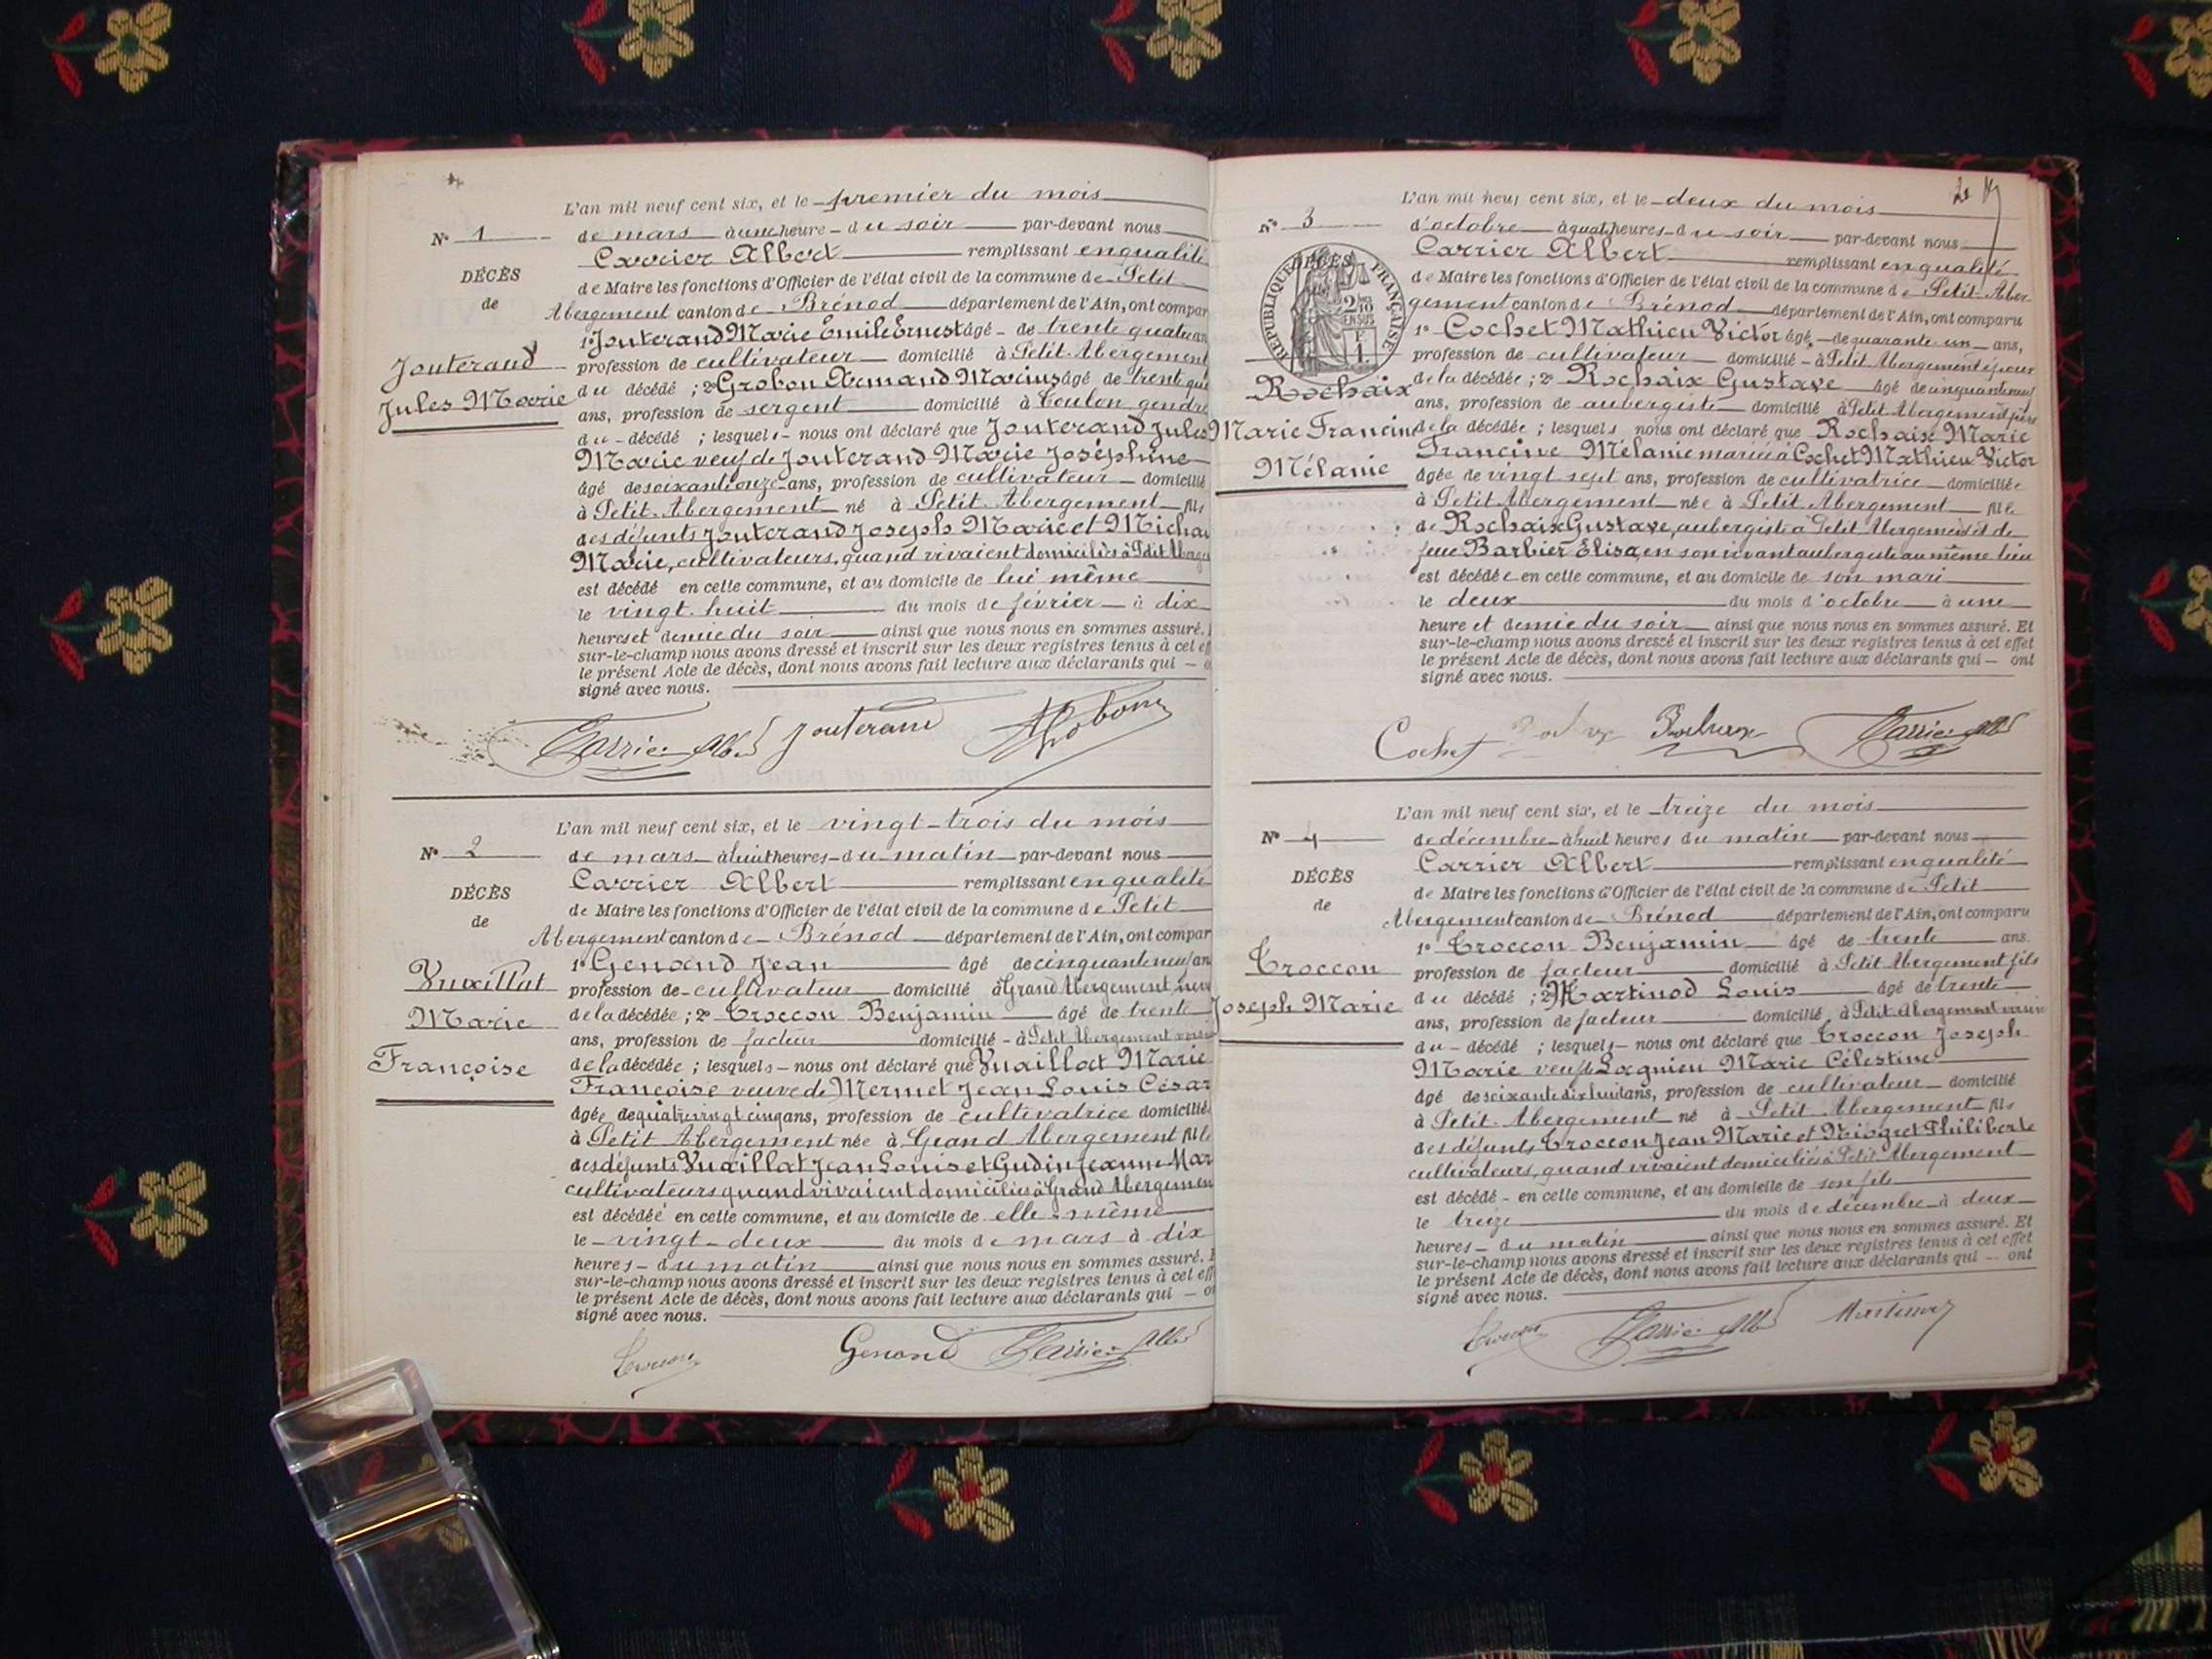 L'an mil neuf cent six, et le premier du mois
N° 1
de mars à une heure du soir par-devant nous
Carrier Albert remplissant en qualité
DÉCÈS
de Maire les fonctions d'Officier de l'état civil de la commune de Petit
de
Abergement canton de Brénod département de l'Ain, ont compar
1° Jouterand Marie Emile Ernest âgé de trente quatre an
Jouterand
profession de cultivateur domicilié à Petit Abergement
Jules Marie
du décédé ; 2° Grobon Armand Marius âgé de trente
ans, profession de sergent domicilié à Toulon gendre
du décédé ; lesquels nous ont déclaré que Jouterand Jules
Marie veuf de Jouterand Marie Joséphine
âgé de soixante onze ans, profession de cultivateur domicilié
à Petit Abergement né à Petit Abergement fils
des défunts Jouterand Joseph Marie et Michau
Marie, cultivateurs, quand vivaient domiciliés à Petit Aberge
est décédé en cette commune, et au domicile de lui même
le vingt huit du mois de février à dix
heures et demie du soir ainsi que nous nous en sommes assuré.
sur-le-champ nous avons dressé et inscrit sur les deux registres tenus à cet eff
le présent Acte de décès, dont nous avons fait lecture aux déclarants qui o
signé avec nous.
Carrier Alb Jouterand AGrobon
L'an mil neuf cent six, et le vingt-trois du mois
N° 2
de mars à huit heures du matin par-devant nous
Carrier Albert remplissant en qualité
DÉCÈS
de Maire les fonctions d'Officier de l'état civil de la commune de Petit
de
Abergement canton de Brénod département de l'Ain, ont compar
1° Genand Jean âgé de cinquante neuf an
Vuaillat
profession de cultivateur domicilié à Grand Abergement neveu
Marie
de la décédée ; 2° Troccon Benjamin âgé de trente
ans, profession de facteur domicilié à Petit Abergement voisin
Françoise
de la décédée ; lesquels nous ont déclaré que Vuaillat Marie
Françoise veuve de Mermet Jean Louis César
âgée de quatre vingt cinq ans, profession de cultivatrice domiciliée
à Petit Abergement née à Grand Abergement fille
des défunts Vuaillat Jean Louis et Gudin Jeanne Mar
cultivateurs quand vivaient domiciliés à Grand Abergemen
est décédée en cette commune, et au domicile de elle-même
le vingt-deux du mois de mars à dix
heures du matin ainsi que nous nous en sommes assuré. E
sur-le-champ nous avons dressé et inscrit sur les deux registres tenus à cet eff
le présent Acte de décès, dont nous avons fait lecture aux déclarants qui o
signé avec nous.
Troccon Genand Carrier Alb
L'an mil neuf cent six, et le deux du mois
N° 3
d'octobre à quat heures du soir par-devant nous
Carrier Albert remplissant en qualité
DÉCÈS
RÉPUBLIQUE FRANÇAISE
2/10 EN SUS
de Maire les fonctions d'Officier de l'état civil de la commune de Petit-Aber-
gement canton de Brénod département de l'Ain, ont comparu
1° Cochet Mathieu Victor âgé de quarante un ans,
profession de cultivateur domicilié à Petit Abergement époux
Rochaix
de la décédée ; 2° Rochaix Gustave âgé de cinquante neuf
ans, profession de aubergiste domicilié à Petit Abergement père
Marie Francine
de la décédée ; lesquels nous ont déclaré que Rochaix Marie
Francine Mélanie mariée à Cochet Mathieu Victor
Mélanie
âgée de vingt sept ans, profession de cultivatrice domiciliée
à Petit Abergement née à Petit Abergement fille
de Rochaix Gustave, aubergiste à Petit Abergement et de
feue Barbier Élisa, en son vivant aubergiste au même lieu
est décédée en cette commune, et au domicile de son mari
le deux du mois d'octobre à une
heure et demie du soir ainsi que nous nous en sommes assuré. Et
sur-le-champ nous avons dressé et inscrit sur les deux registres tenus à cet effet
le présent Acte de décès, dont nous avons fait lecture aux déclarants qui ont
signé avec nous.
Cochet Rochaix Carrier Alb
L'an mil neuf cent six, et le treize du mois
N° 4
de décembre à huit heures du matin par-devant nous
Carrier Albert remplissant en qualité
DÉCÈS
de Maire les fonctions d'Officier de l'état civil de la commune de Petit
de
Abergement canton de Brénod département de l'Ain, ont comparu
1° Troccon Benjamin âgé de trente ans.
Troccon
profession de facteur domicilié à Petit Abergement fils
Joseph Marie
du décédé ; 2° Martinod Louis âgé de trente
ans, profession de facteur domicilié à Petit Abergement voisin
du décédé ; lesquels nous ont déclaré que Troccon Joseph
Marie veuf de Lagnieu Marie Célestine
âgé de soixante dix huit ans, profession de cultivateur domicilié
à Petit Abergement né à Petit Abergement fils
des défunts Troccon Jean Marie et Niogret Philiberte
cultivateurs, quand vivaient domiciliés à Petit Abergement
est décédé en cette commune, et au domicile de son fils
le treize du mois de décembre à deux
heures du matin ainsi que nous nous en sommes assuré. Et
sur-le-champ nous avons dressé et inscrit sur les deux registres tenus à cet effet
le présent Acte de décès, dont nous avons fait lecture aux déclarants qui ont
signé avec nous.
Troccon Carrier Alb Martinod